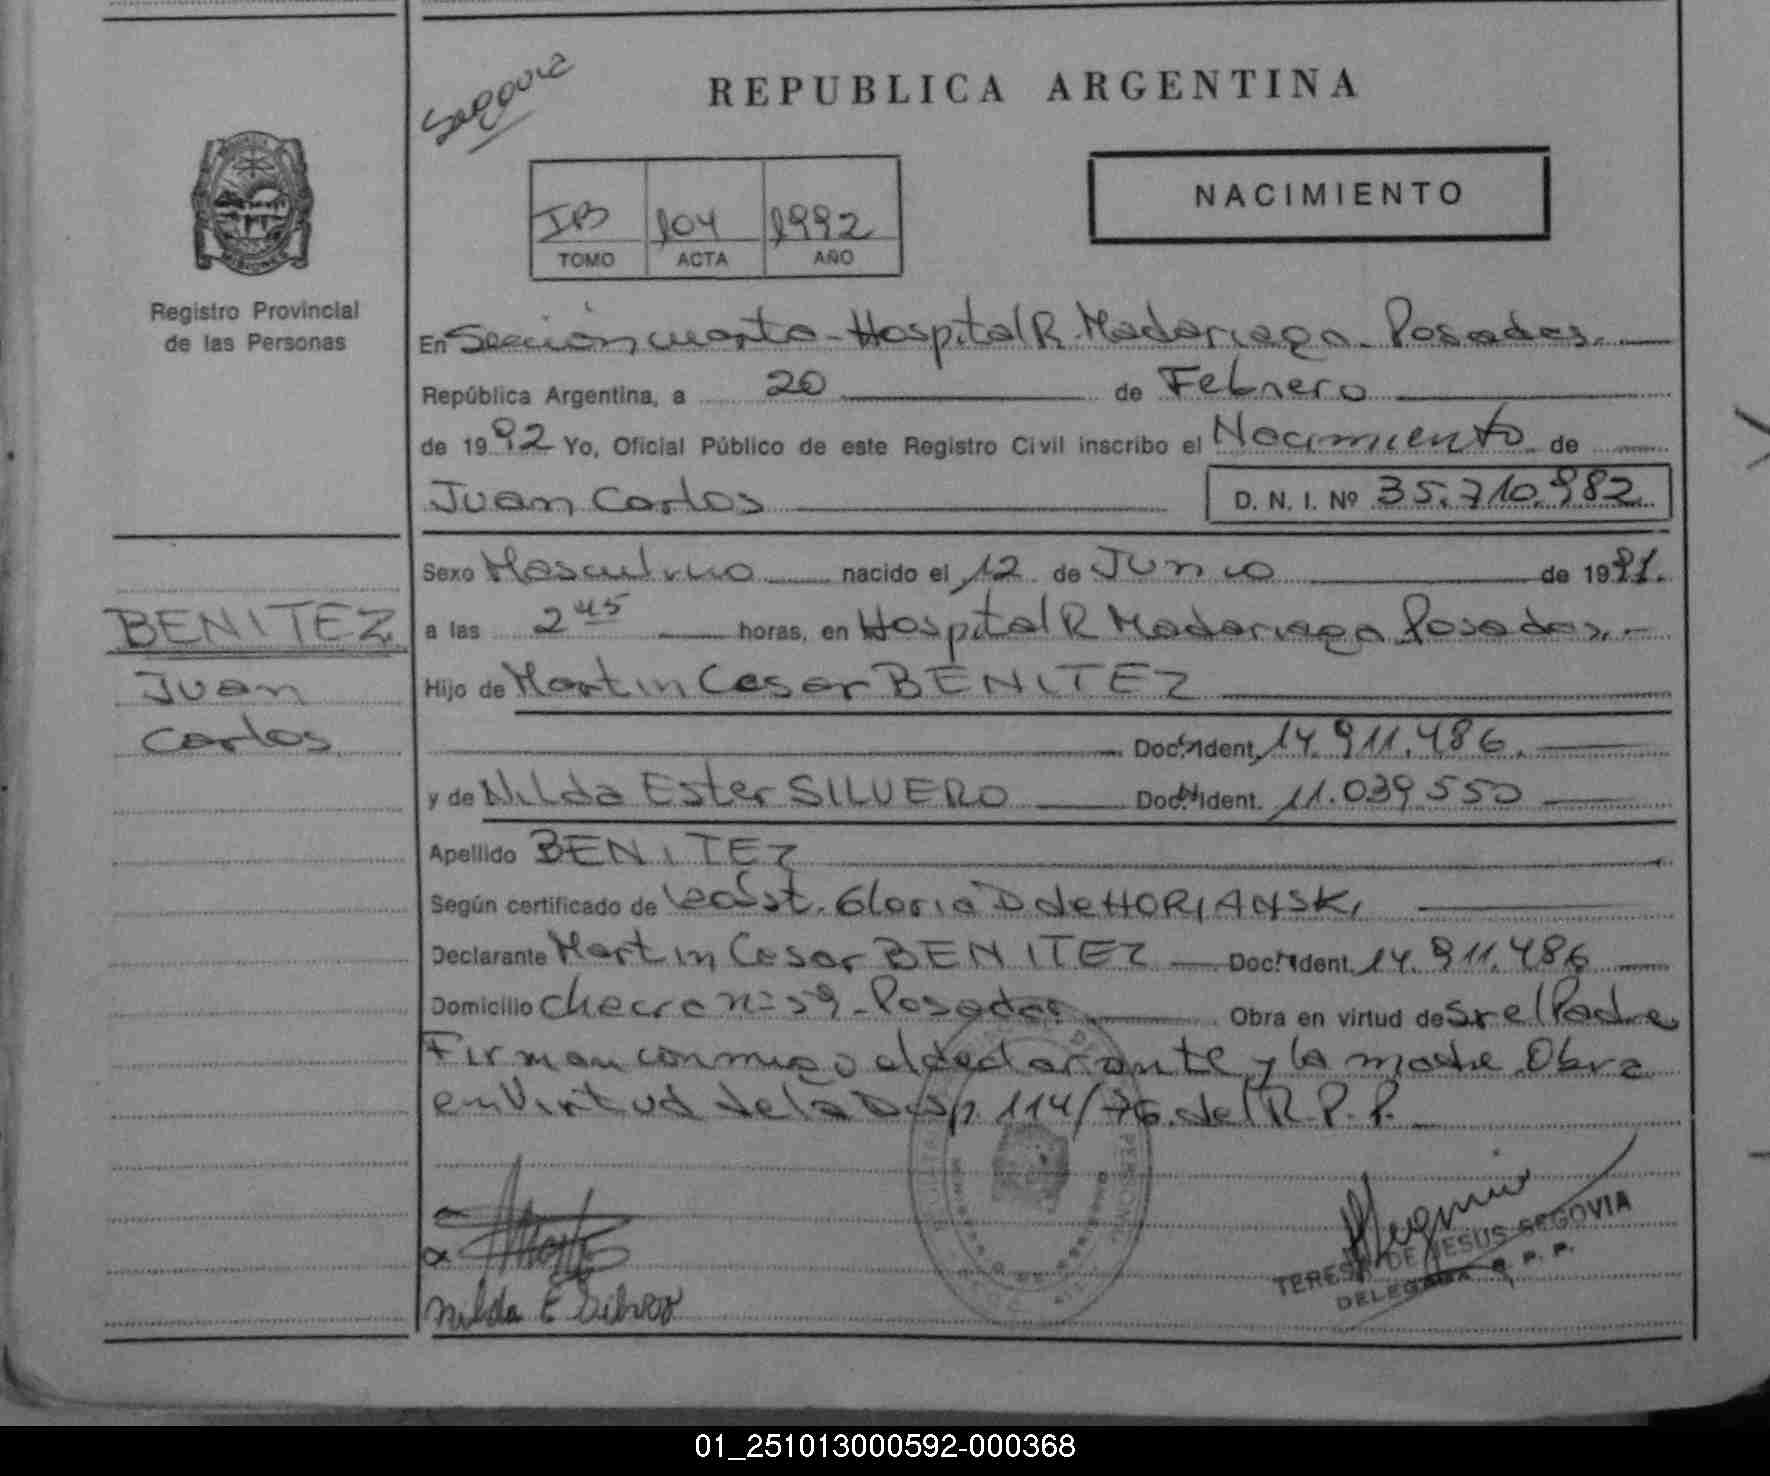 REPUBLICA ARGENTINA
NACIMIENTO
IB 104 1992
TOMO ACTA AÑO
MISIONES
Registro Provincial
de las Personas
En Sección cuarta - Hospital R. Madariaga - Posadas.
República Argentina, a 20 de Febrero
de 1992 Yo, Oficial Público de este Registro Civil inscribo el Nacimiento de
Juan Carlos D. N. I. Nº 35.710.982.
Sexo Masculino nacido el 12 de Junio de 1991.
a las 2 45 horas, en Hospital R Madariaga Posadas.-
Hijo de Martin Cesar BENITEZ
Doc. Ident. 14.911.486.
y de Nilda Ester SILVERO Doc. Ident. 11.039.550
Apellido BENITEZ
Según certificado de Gloria D de HORIANSKI
Declarante Martin Cesar BENITEZ Doc. Ident. 14.911.486
Domicilio checra nº 59 - Posadas Obra en virtud de Sr el Padre
Firman conmigo el declarante y la madre. Obra
en Virtud de la Disp. 114/76. del R. P. P.
BENITEZ
Juan
Carlos
Nilda E Silvero
TERESA DE JESUS SEGOVIA
DELEGADA R. P. P.
01_251013000592-000368